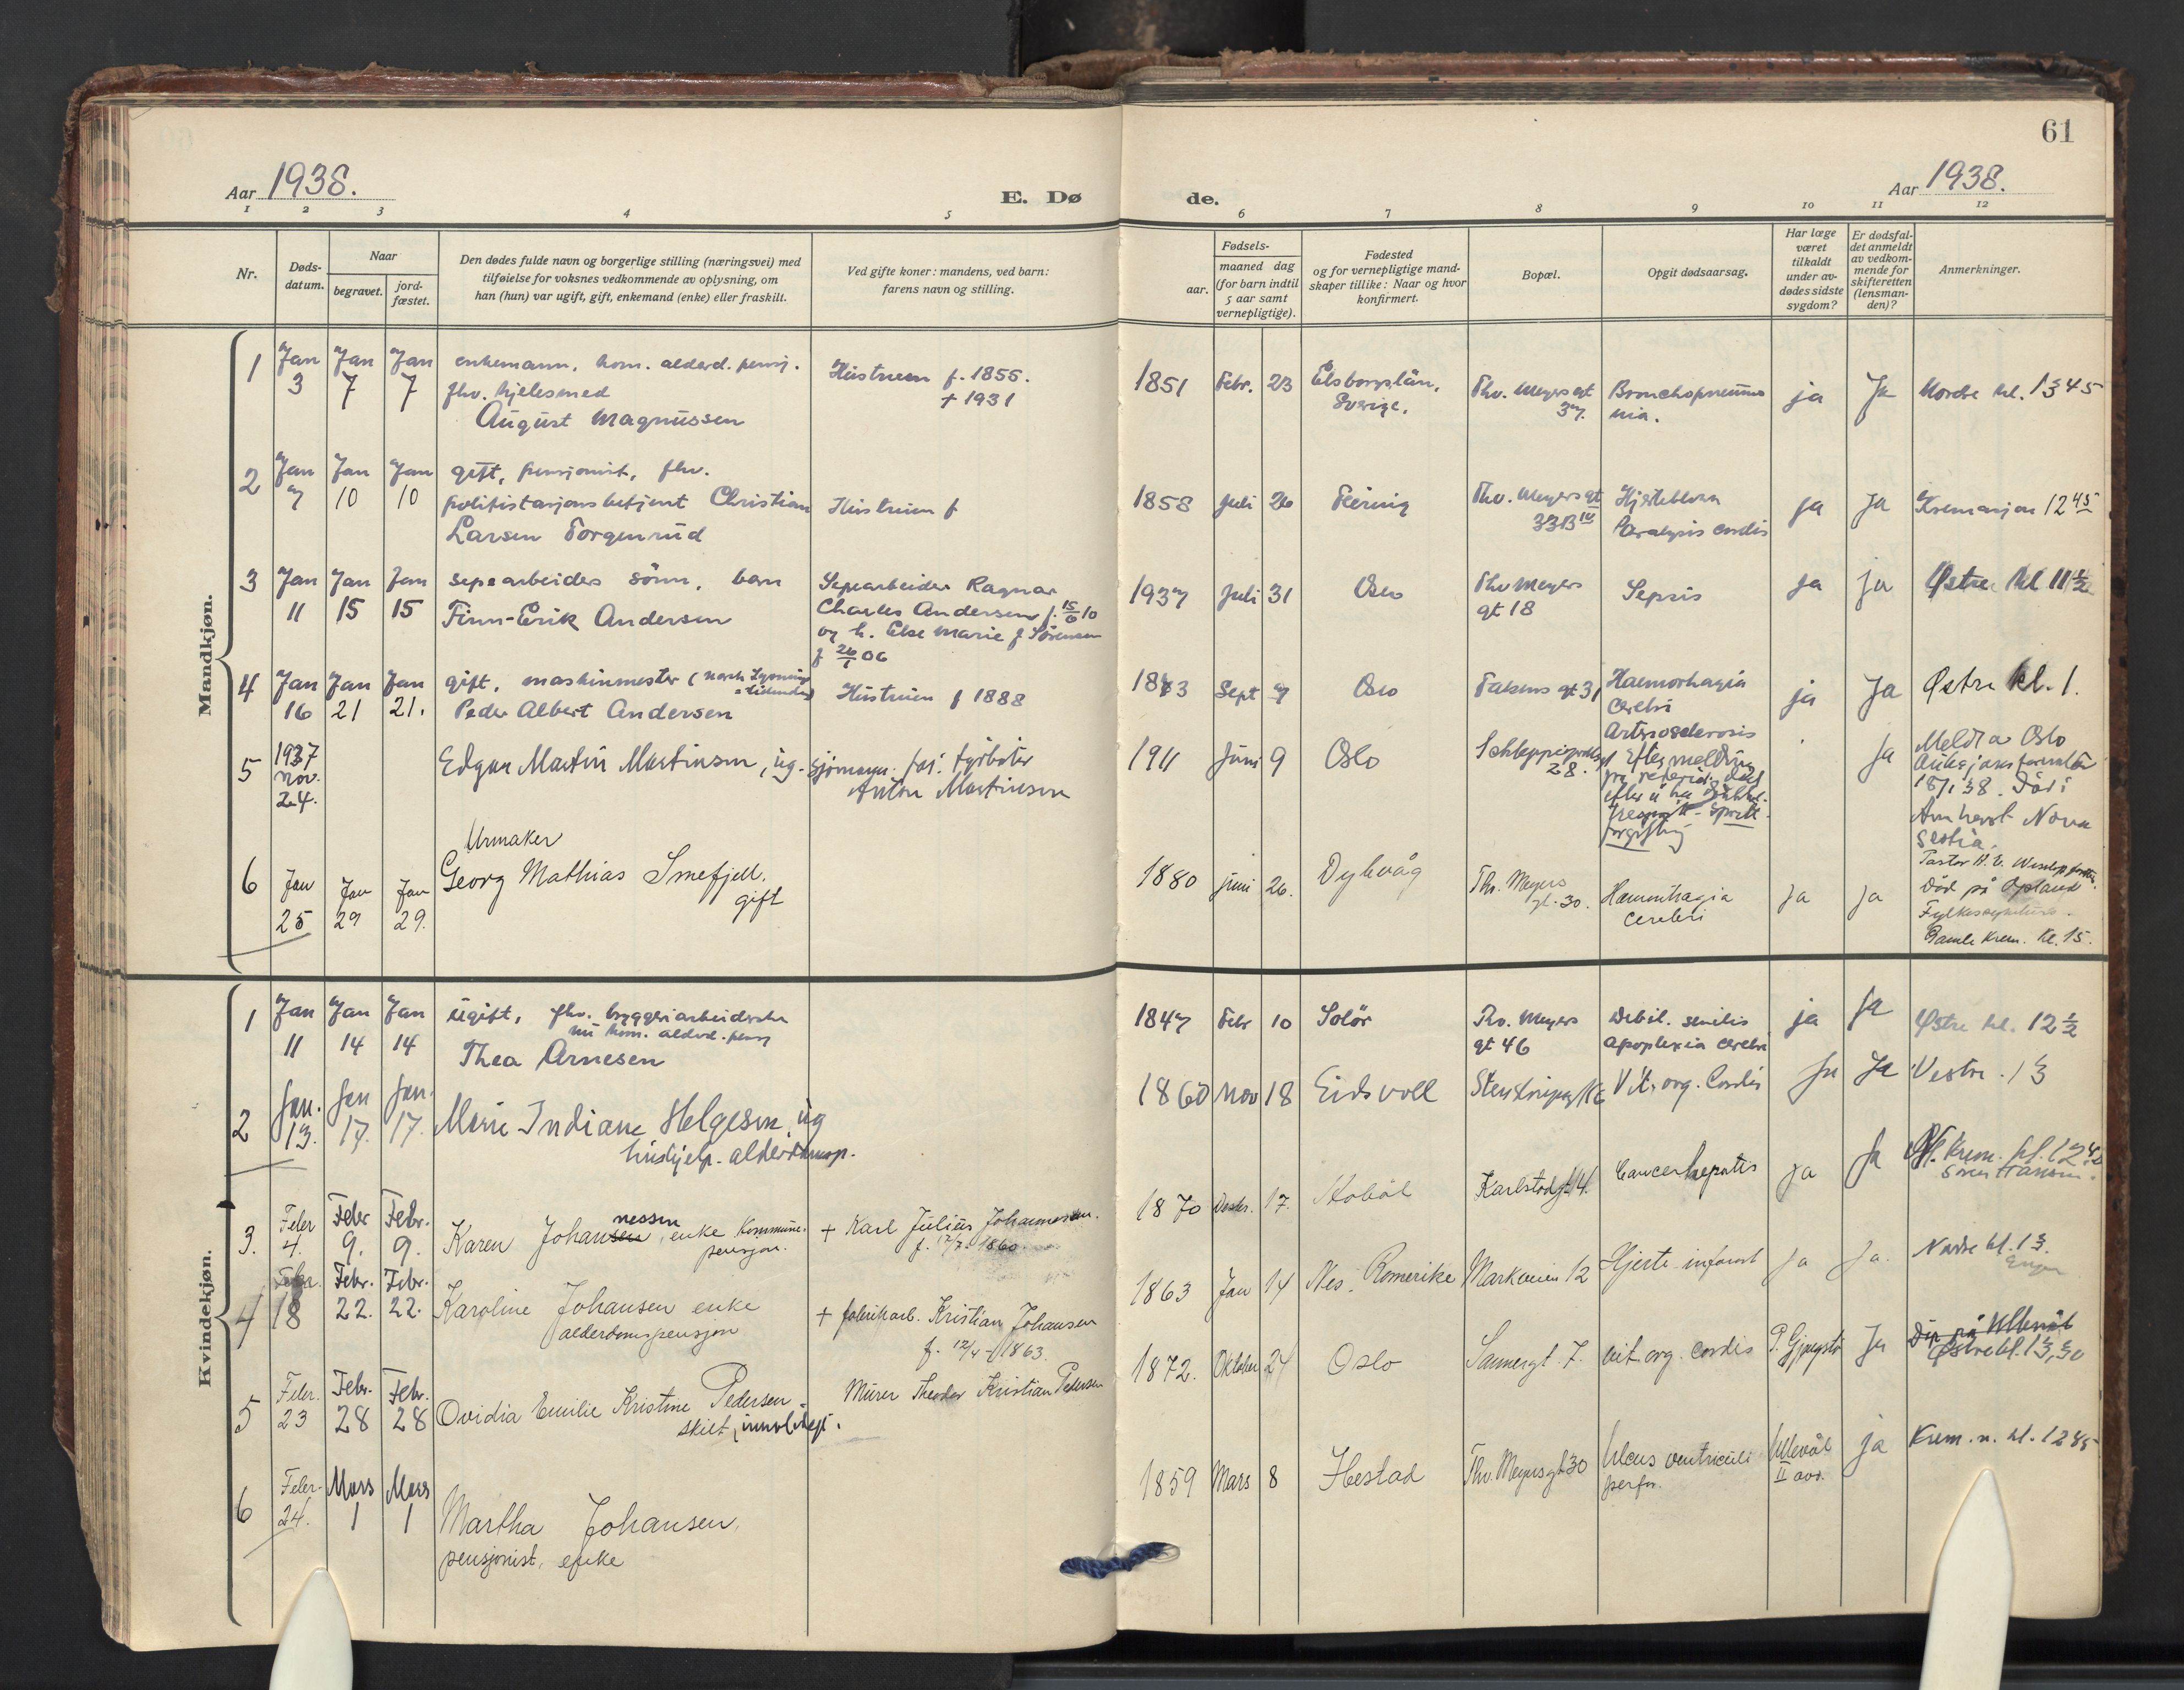 61
Aar 1938.
E. Dø
de.
Aar 1938.
1 2 3 4 5 6 7 8 9 10 11 12
Nr.
Døds-
datum.
Naar
begravet.
jord-
fæstet.
Den dødes fulde navn og borgerlige stilling (næringsvei) med
tilføielse for voksnes vedkommende av oplysning, om
han (hun) var ugift, gift, enkemand (enke) eller fraskilt.
Ved gifte koner: mandens, ved barn:
farens navn og stilling.
Fødsels-
aar.
maaned dag
(for barn indtil
5 aar samt
vernepligtige).
Fødested
og for vernepligtige mand-
skaper tillike: Naar og hvor
konfirmert.
Bopæl.
Opgit dødsaarsag.
Har læge
været
tilkaldt
under av-
dødes sidste
sygdom?
Er dødsfal-
det anmeldt
av vedkom-
mende for
skifteretten
(lensman-
den)?
Anmerkninger.
Mandkjøn.
1 Jan 3 Jan 7 Jan 7
enkemann, kom. alderd. pensj.
fhv. hjelesmed
August Magnussen
Hustruen f. 1855.
+ 1931
1851 Febr. 23
Elsborgslän,
Sverige.
Thv. Meyers gt
37.
Bronchopneumo
nia.
ja Ja Nordre kl. 13 45
2 Jan 7 Jan 10 Jan 10
gift, pensjonist, fhv.
politistasjonsbetjent Christian
Larsen Torgenrud
Hustruen f
1858 Juli 26 Feiring
Thv. Meyers gt
33B IV
Paralysis cordis
ja Ja Kremasjon 12 45
3 Jan 11 Jan 15 Jan 15
sepearbeiders sönn, barn
Finn-Erik Andersen
Sepearbeider Ragnar
Charles Andersen f. 15/6 10
og h. Else Marie f Sörensen
f 26/1 06
1937 Juli 31 Oslo
Thv Meyers
gt 18
Sepsis
Ja ja Østre kl 11 1/2
4 Jan 16 Jan 21 Jan 21.
gift, maskinmester (Norsk Lysnings
tidende)
Peder Albert Andersen
Hustruen f 1888
1873 Sept 7 Oslo Falsens gt 31
Haemorhagia
cerebri
Arteriosclerosis
ja Ja Østre kl. 1.
5 1937
Nov.
24.
Edgar Martin Martinsen, ug. sjömann. far: fyrböter
Anton Martinsen
1911 Juni 9 Oslo
Schleppegrellsgt
28.
Efter melding
ja
Meldt av Oslo
18/1 38. Död i
Amherst Nova
Scotia.
6 Jan 25 Jan 29 Jan 29.
Urmaker
Georg Mathias Smefjell.
gift
1880 juni 26. Dybvåg
Thv. Meyers
gt. 30.
Haemorrhagia
cerebri
Ja Ja
Död på Opland
Fylkessykehus.
Gamle Krem. Kl. 15.
Kvindekjøn.
1 Jan 11 Jan 14 Jan 14
ugift, fhv. bryggeriarbeiderske
nu kom. alderd. pensj
Thea Arnesen
1847 Febr 10 Solör
Thv. Meyers
gt 46
Debil. senilis
apoplexia cerebri
ja ja Østre kl. 12 1/2
2 Jan. 13. Jan 17. Jan. 17.
Marie Indiane Helgesen, ug
hushjelp - alderdomsp.
1860 Nov 18 Eidsvoll
Vit. org. Cordis
Ja Ja Vestre. 13
3. Febr 4. Febr 9. Febr. 9.
Karen Johansen nessen, enke Kommune-
pensjon.
+ Karl Julius Johannessen.
f. 17/7 - 1860
1870 17. Hobøl Karlstadgt 4. Cancer hepatis
Ja Ja
Gl. Krem. kl. 12 45
Sören Hansen.
4 Febr. 18 Febr. 22. Febr. 22.
Karoline Johansen enke
alderdomspensjon
+ fabrikkarb. Kristian Johansen
f. 12/4 - 1863.
1863 Jan 14 Nes. Romerike Markveien 12 Hjerte infarct
Ja Ja. Nordre kl. 13.
5 Febr. 23 Febr. 28 Febr. 28
Ovidia Emilie Kristine Pedersen
skilt,
Murer Theodor Kristian Pedersen
1872. Oktober 24 Oslo Sannergt. 7. vit. org. cordis
Ja
Död på Ullevål
Østre kl. 13,30
6 Febr. 24. Mars 1 Mars 1
Martha Johansen,
pensjonist, enke
1859 Mars 8 Thv. Meyersgt 30
Ulcus ventriculi
perfor.
Ullevål
II avd.
ja Krem. n. kl. 12 45